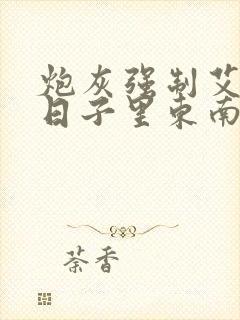 炮灰强制艾
日子里东南
荼香